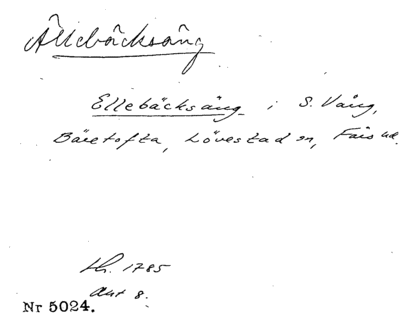 Ällebäcksäng
Ellebäcksäng i S. Vång,
Bäretofta, Lövestad sn, Färs hd.
h. 1785
Akt 8.
Nr 5024.